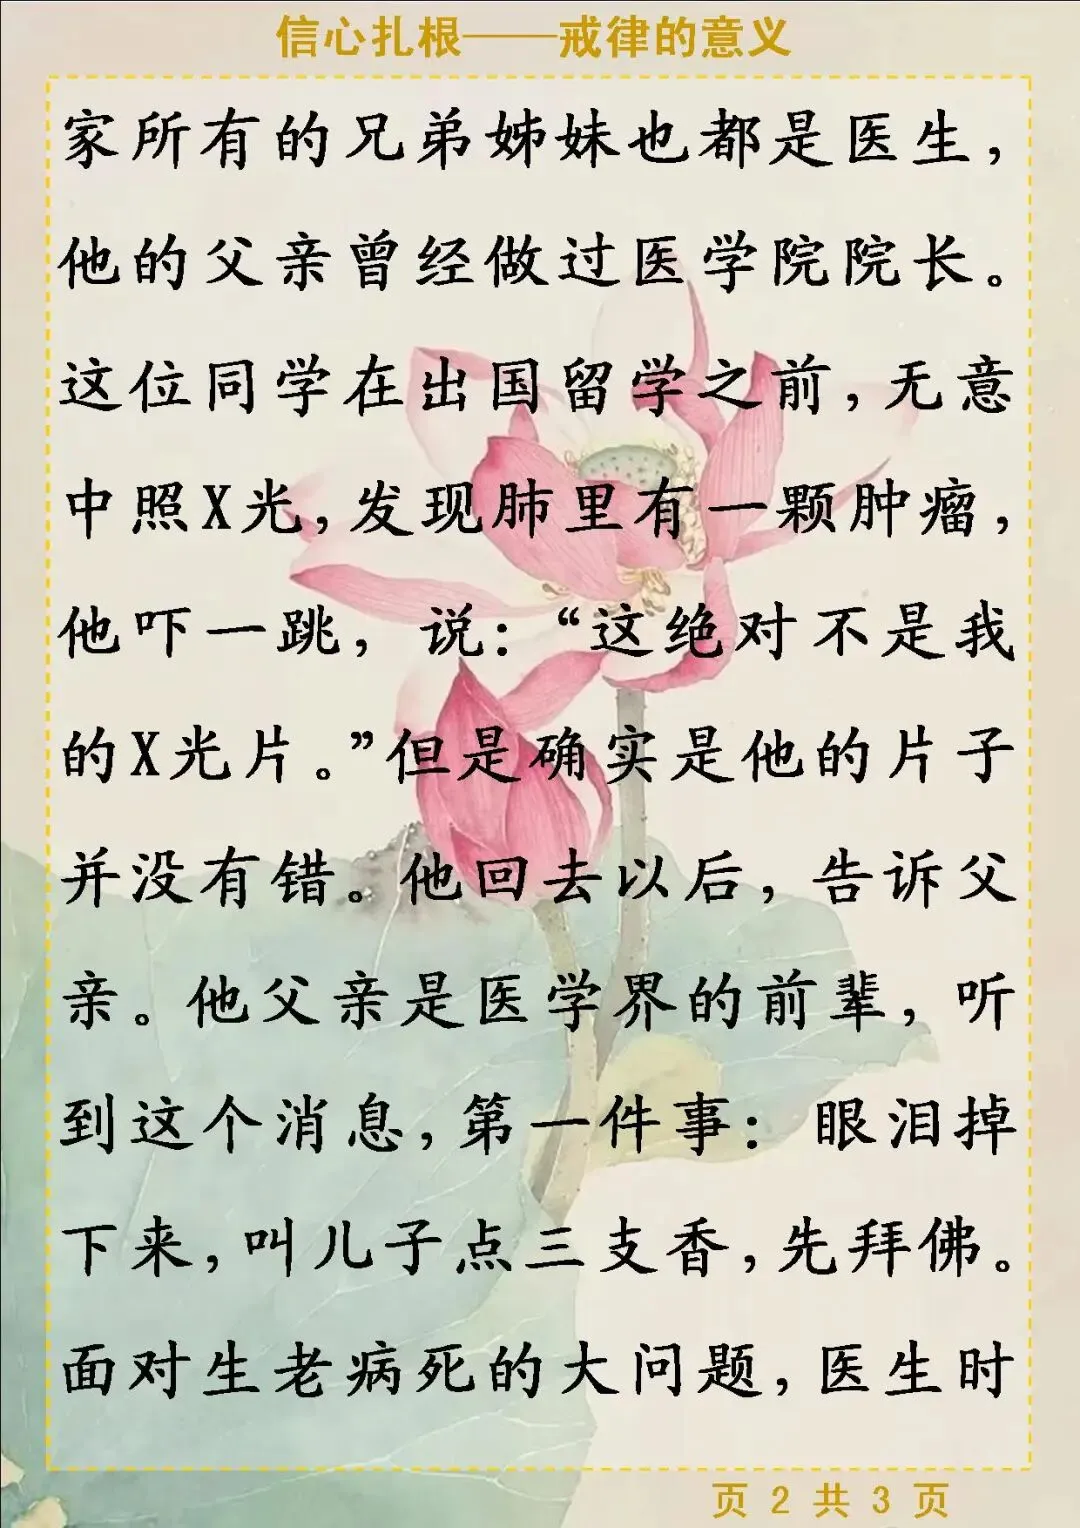 信心扎根——戒律的意义
家所有的兄弟姊妹也都是医生，
他的父亲曾经做过医学院院长。
这位同学在出国留学之前，无意
中照X光，发现肺里有一颗肿瘤，
他吓一跳，说：“这绝对不是我
的X光片。”但是确实是他的片子
并没有错。他回去以后，告诉父
亲。他父亲是医学界的前辈，听
到这个消息，第一件事：眼泪掉
下来，叫儿子点三支香，先拜佛。
面对生老病死的大问题，医生时
页 2 共 3 页